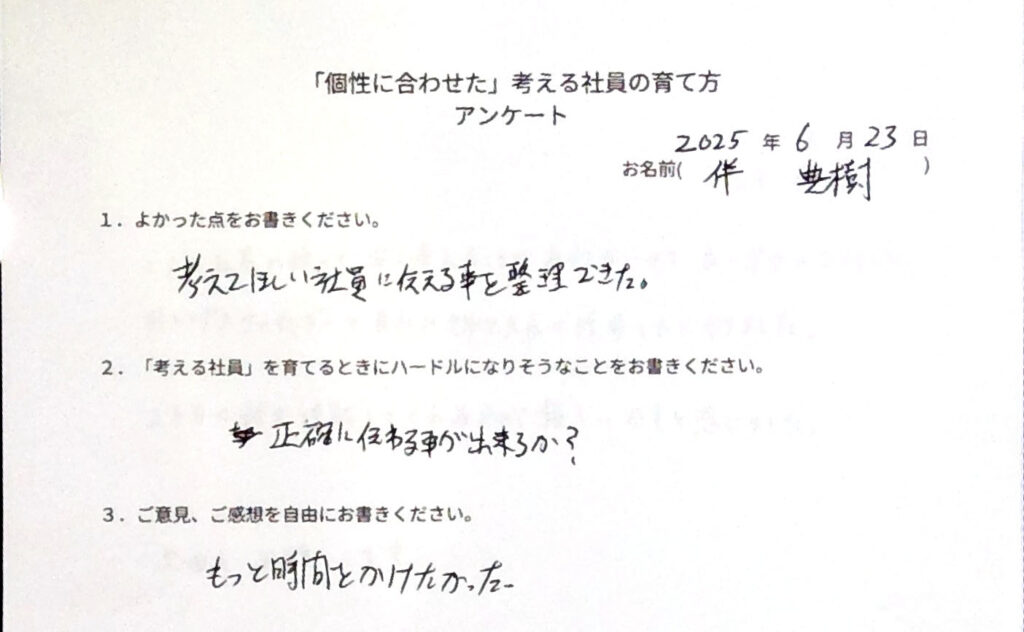 「個性に合わせた」考える社員の育て方
アンケート
2025 年 6 月 23 日
お名前( 伴 典樹 )
1．よかった点をお書きください。
考えてほしい社員に伝える事を整理できた。
2．「考える社員」を育てるときにハードルになりそうなことをお書きください。
正確に伝わる事が出来るか？
3．ご意見、ご感想を自由にお書きください。
もっと時間をかけたかった。